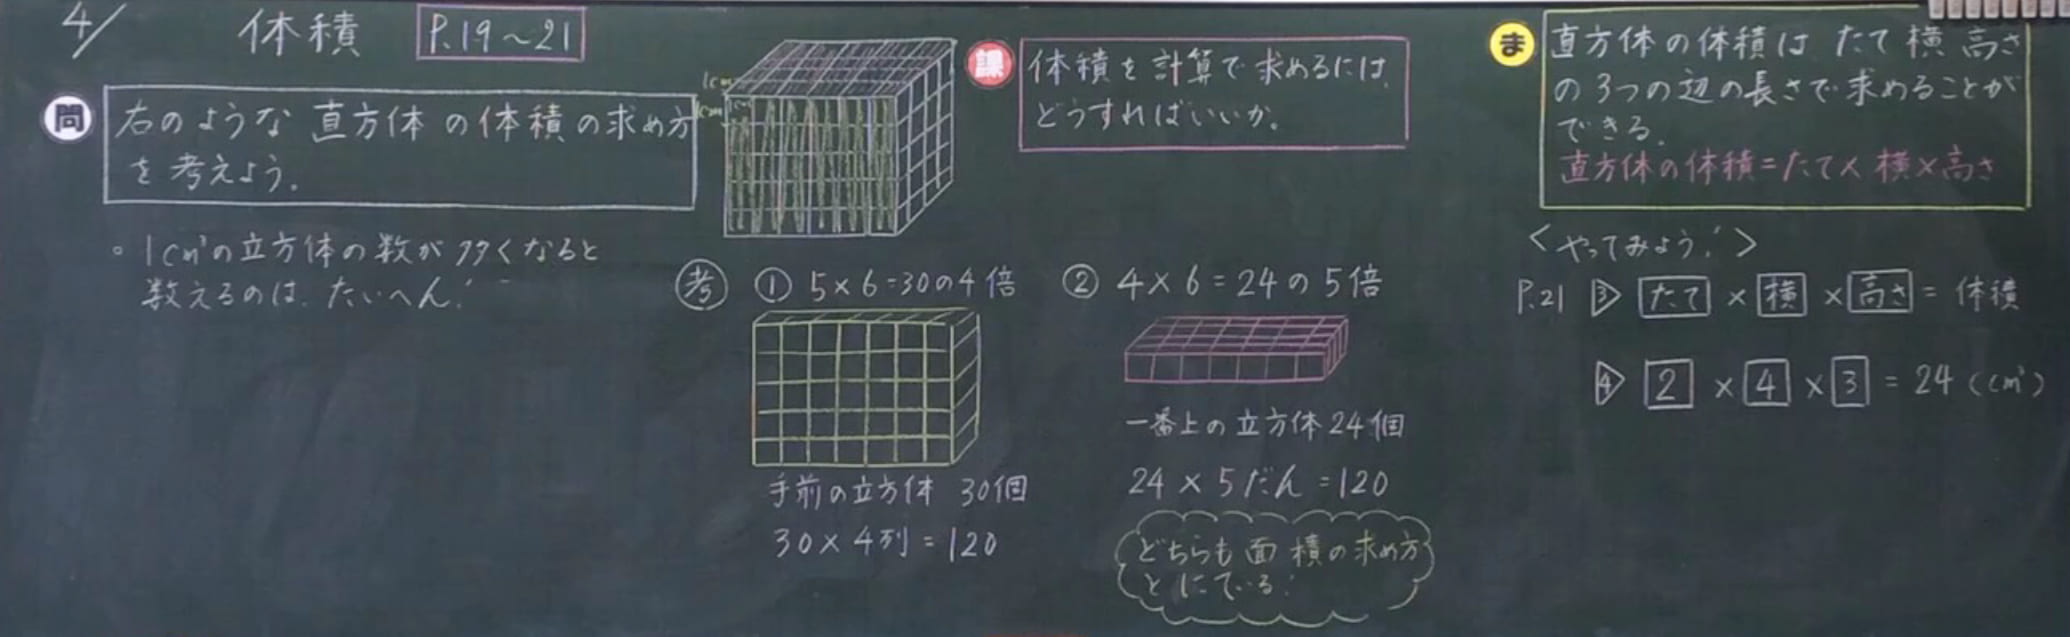 4/
体積
P.19～21
問
右のような直方体の体積の求め方
を考えよう。
。1cm³の立方体の数が多くなると
数えるのは、たいへん！
1cm
1cm
1cm
課
体積を計算で求めるには、
どうすればいいか。
考
① 5×6=30の4倍
手前の立方体 30個
30×4列=120
② 4×6=24の5倍
一番上の立方体24個
24×5だん=120
どちらも面積の求め方
とにている！
ま
直方体の体積は、たて 横 高さ
の3つの辺の長さで求めることが
できる。
直方体の体積=たて×横×高さ
<やってみよう！>
P.21 3 たて×横×高さ=体積
4 2×4×3=24(cm³)